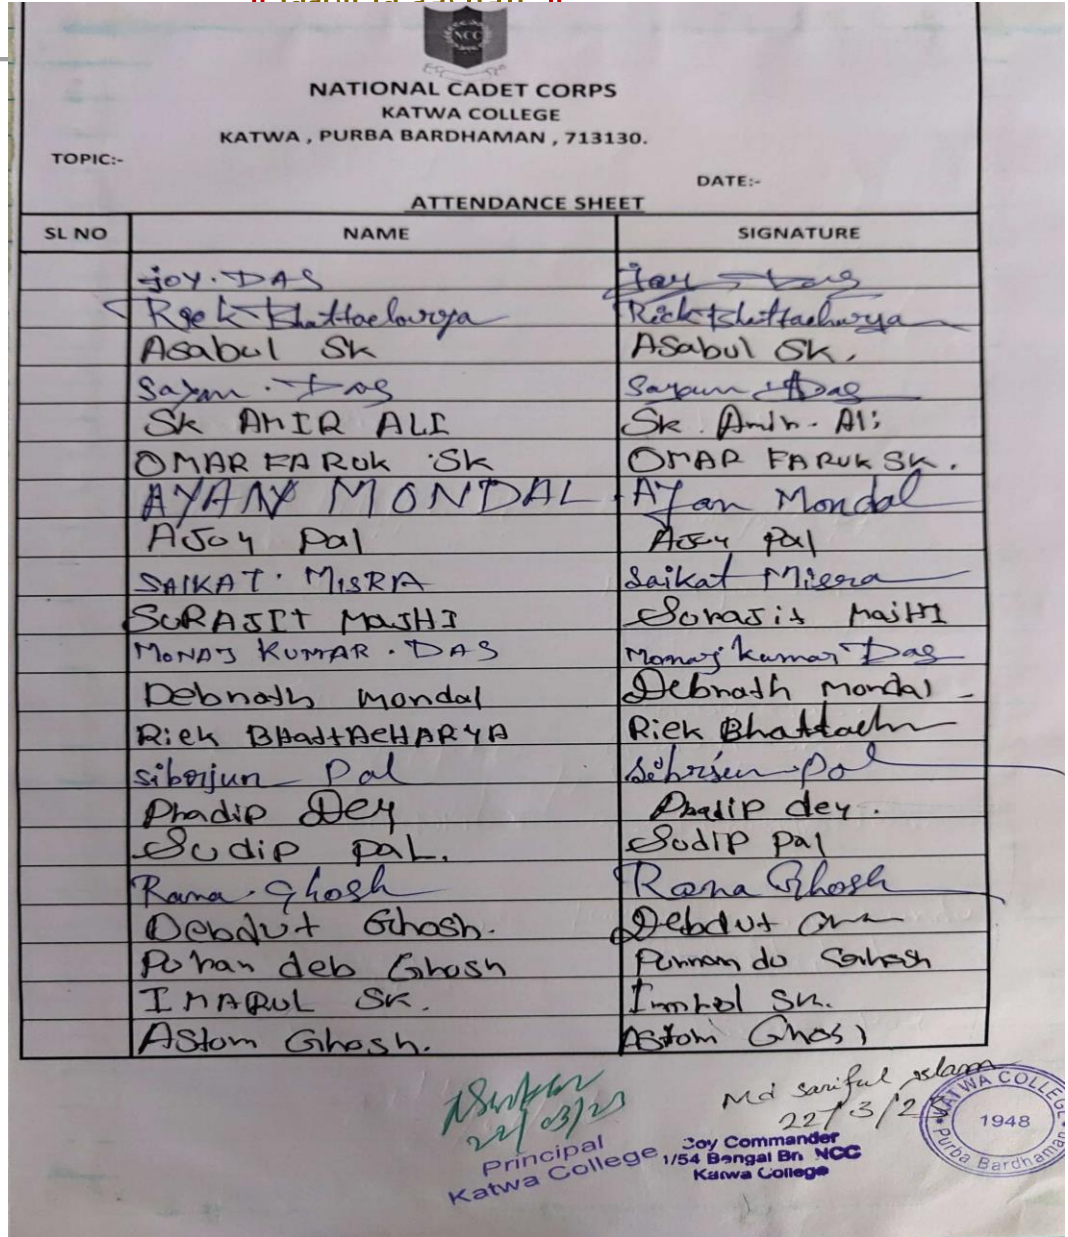 NCC
NATIONAL CADET CORPS
KATWA COLLEGE
KATWA , PURBA BARDHAMAN , 713130.
TOPIC:-
DATE:-
ATTENDANCE SHEET
SL NO NAME SIGNATURE
joy. DAS Joy Das
Rick Bhattacharya Rick Bhattacharya
Asabul Sk Asabul Sk.
Sayan. Das Sayan Das
Sk AMIR ALI Sk. Amir. Ali
OMAR FARUK SK OMAR FARUK SK.
AYAN MONDAL Ayan Mondal
AJoy Pal AJoy Pal
SAIKAT. MISRA Saikat Misra
SURAJIT MAJHI Surajit MaJHI
MONAJ KUMAR. DAS Monaj Kumar Das
Debnath Mondal Debnath Mondal
Riek BHattACHARYA Riek Bhattach
siborjun Pal
Pradip Dey Pradip dey.
Sudip PaL. Sudip Pal
Rana Ghosh Rana Ghosh
Debdut Ghosh. Debdut
deb Ghosh
IMARUL SK. SK.
Astom Ghosh. Astom Ghosh
22/03/23
Principal
Katwa College
Md Sariful Islam
22/3/23
Coy Commander
1/54 Bengal Bn NCC
Katwa College
KATWA COLLEGE
1948
Purba Bardhaman